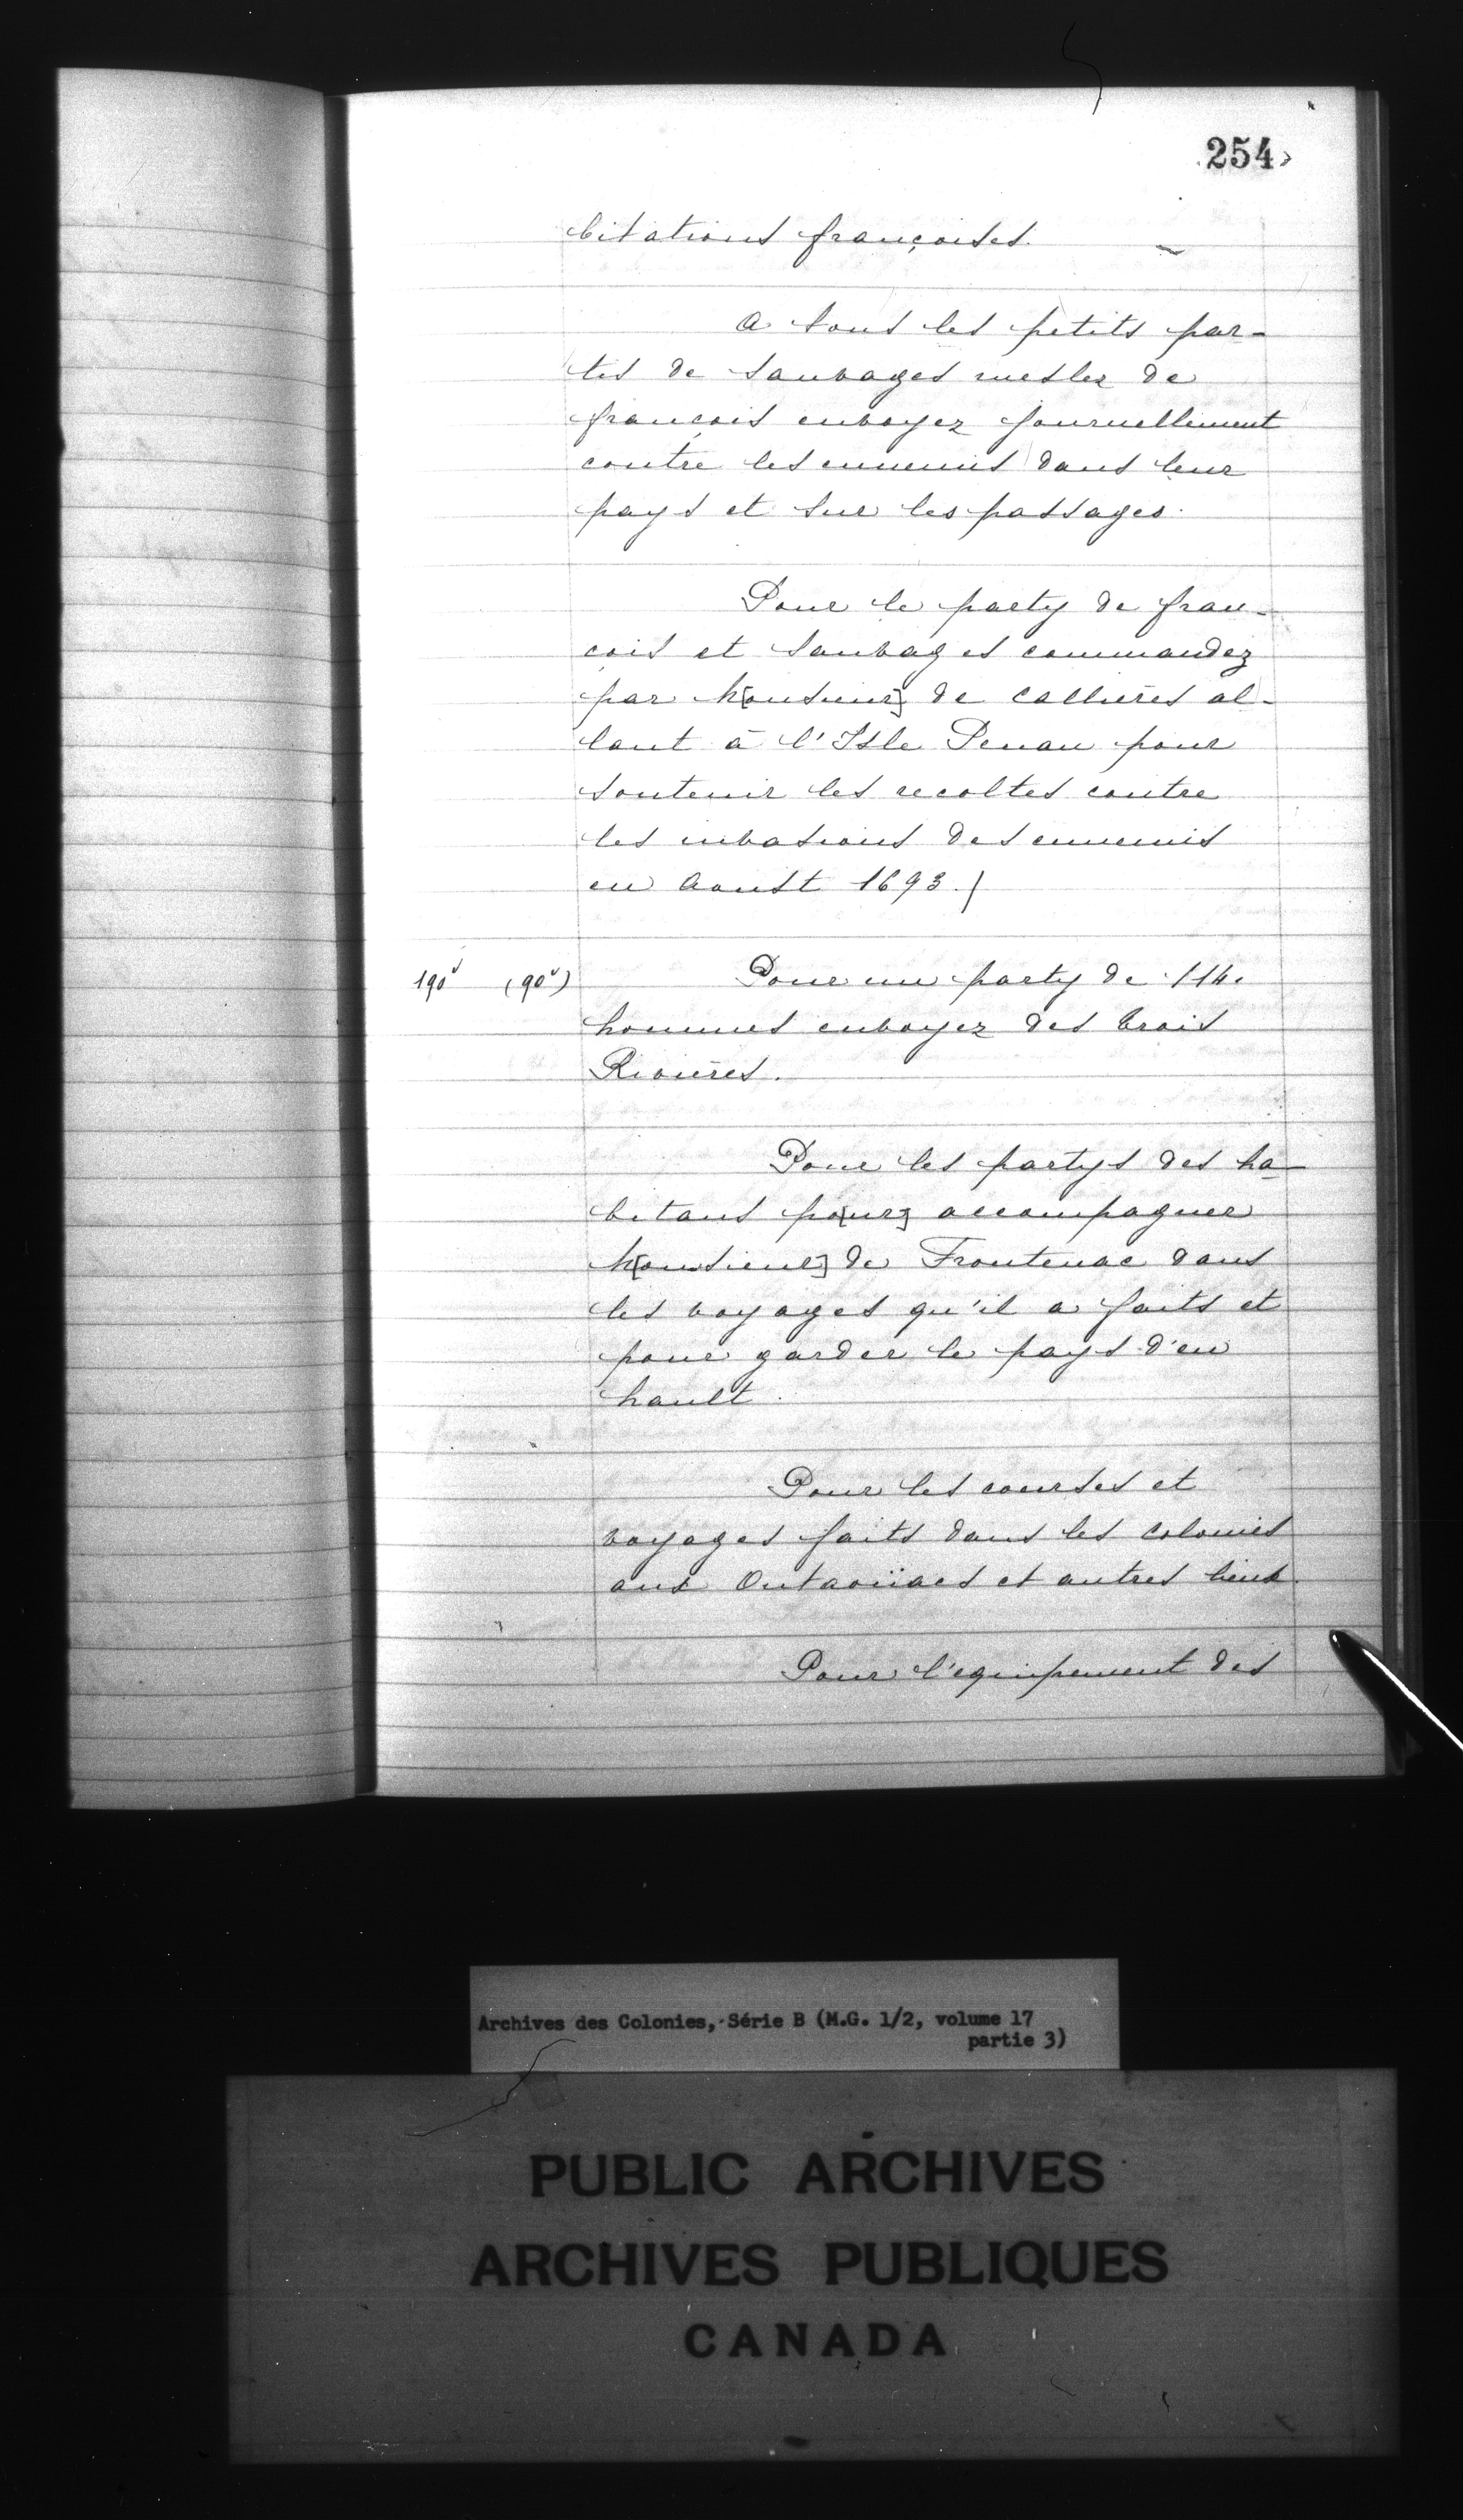 254
bitations françoises.
A tous les petits par-
tis de sauvages meslez de
françois envoyez journellement
contre les ennemis dans leur
pays et sur les passages.
Pour le party de fran-
çois et sauvages commandez
par M[onsieur] de Callieres al-
lant à l'Isle Penau pour
soutenir les recoltes contre
les invasions des ennemis
en Aoust 1693./
190v (90v) Pour un party de 114.
hommes envoyez des trois
Rivieres.
Pour les partys des ha-
bitans po[ur] accompagner
M[onsieur] de Frontenac dans
les voyages qu'il a faits et
pour garder le pays d'en
hault.
Pour les courses et
voyages faits dans les colonies
aux Outaoüacs et autres lieux.
Pour l'equipement des
Archives des Colonies, Série B (M.G. 1/2, volume 17
partie 3)
PUBLIC ARCHIVES
ARCHIVES PUBLIQUES
CANADA